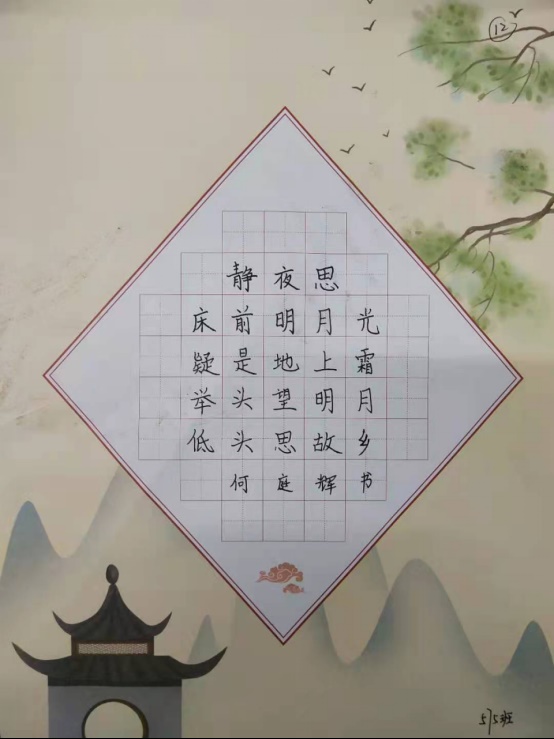 12
静夜思
床前明月光
疑是地上霜
举头望明月
低头思故乡
何庭辉书
575班